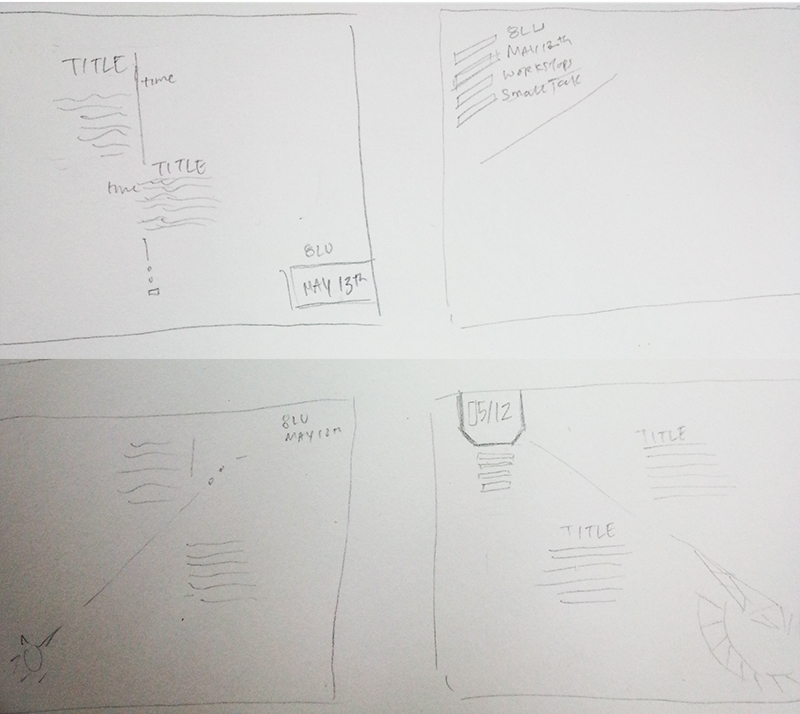 TITLE
time
TITLE
time
8LU
MAY 13th
8LU
MAY 12th
WORKSHOPS
Small Talk
8LU
MAY 12th
05/12
TITLE
TITLE